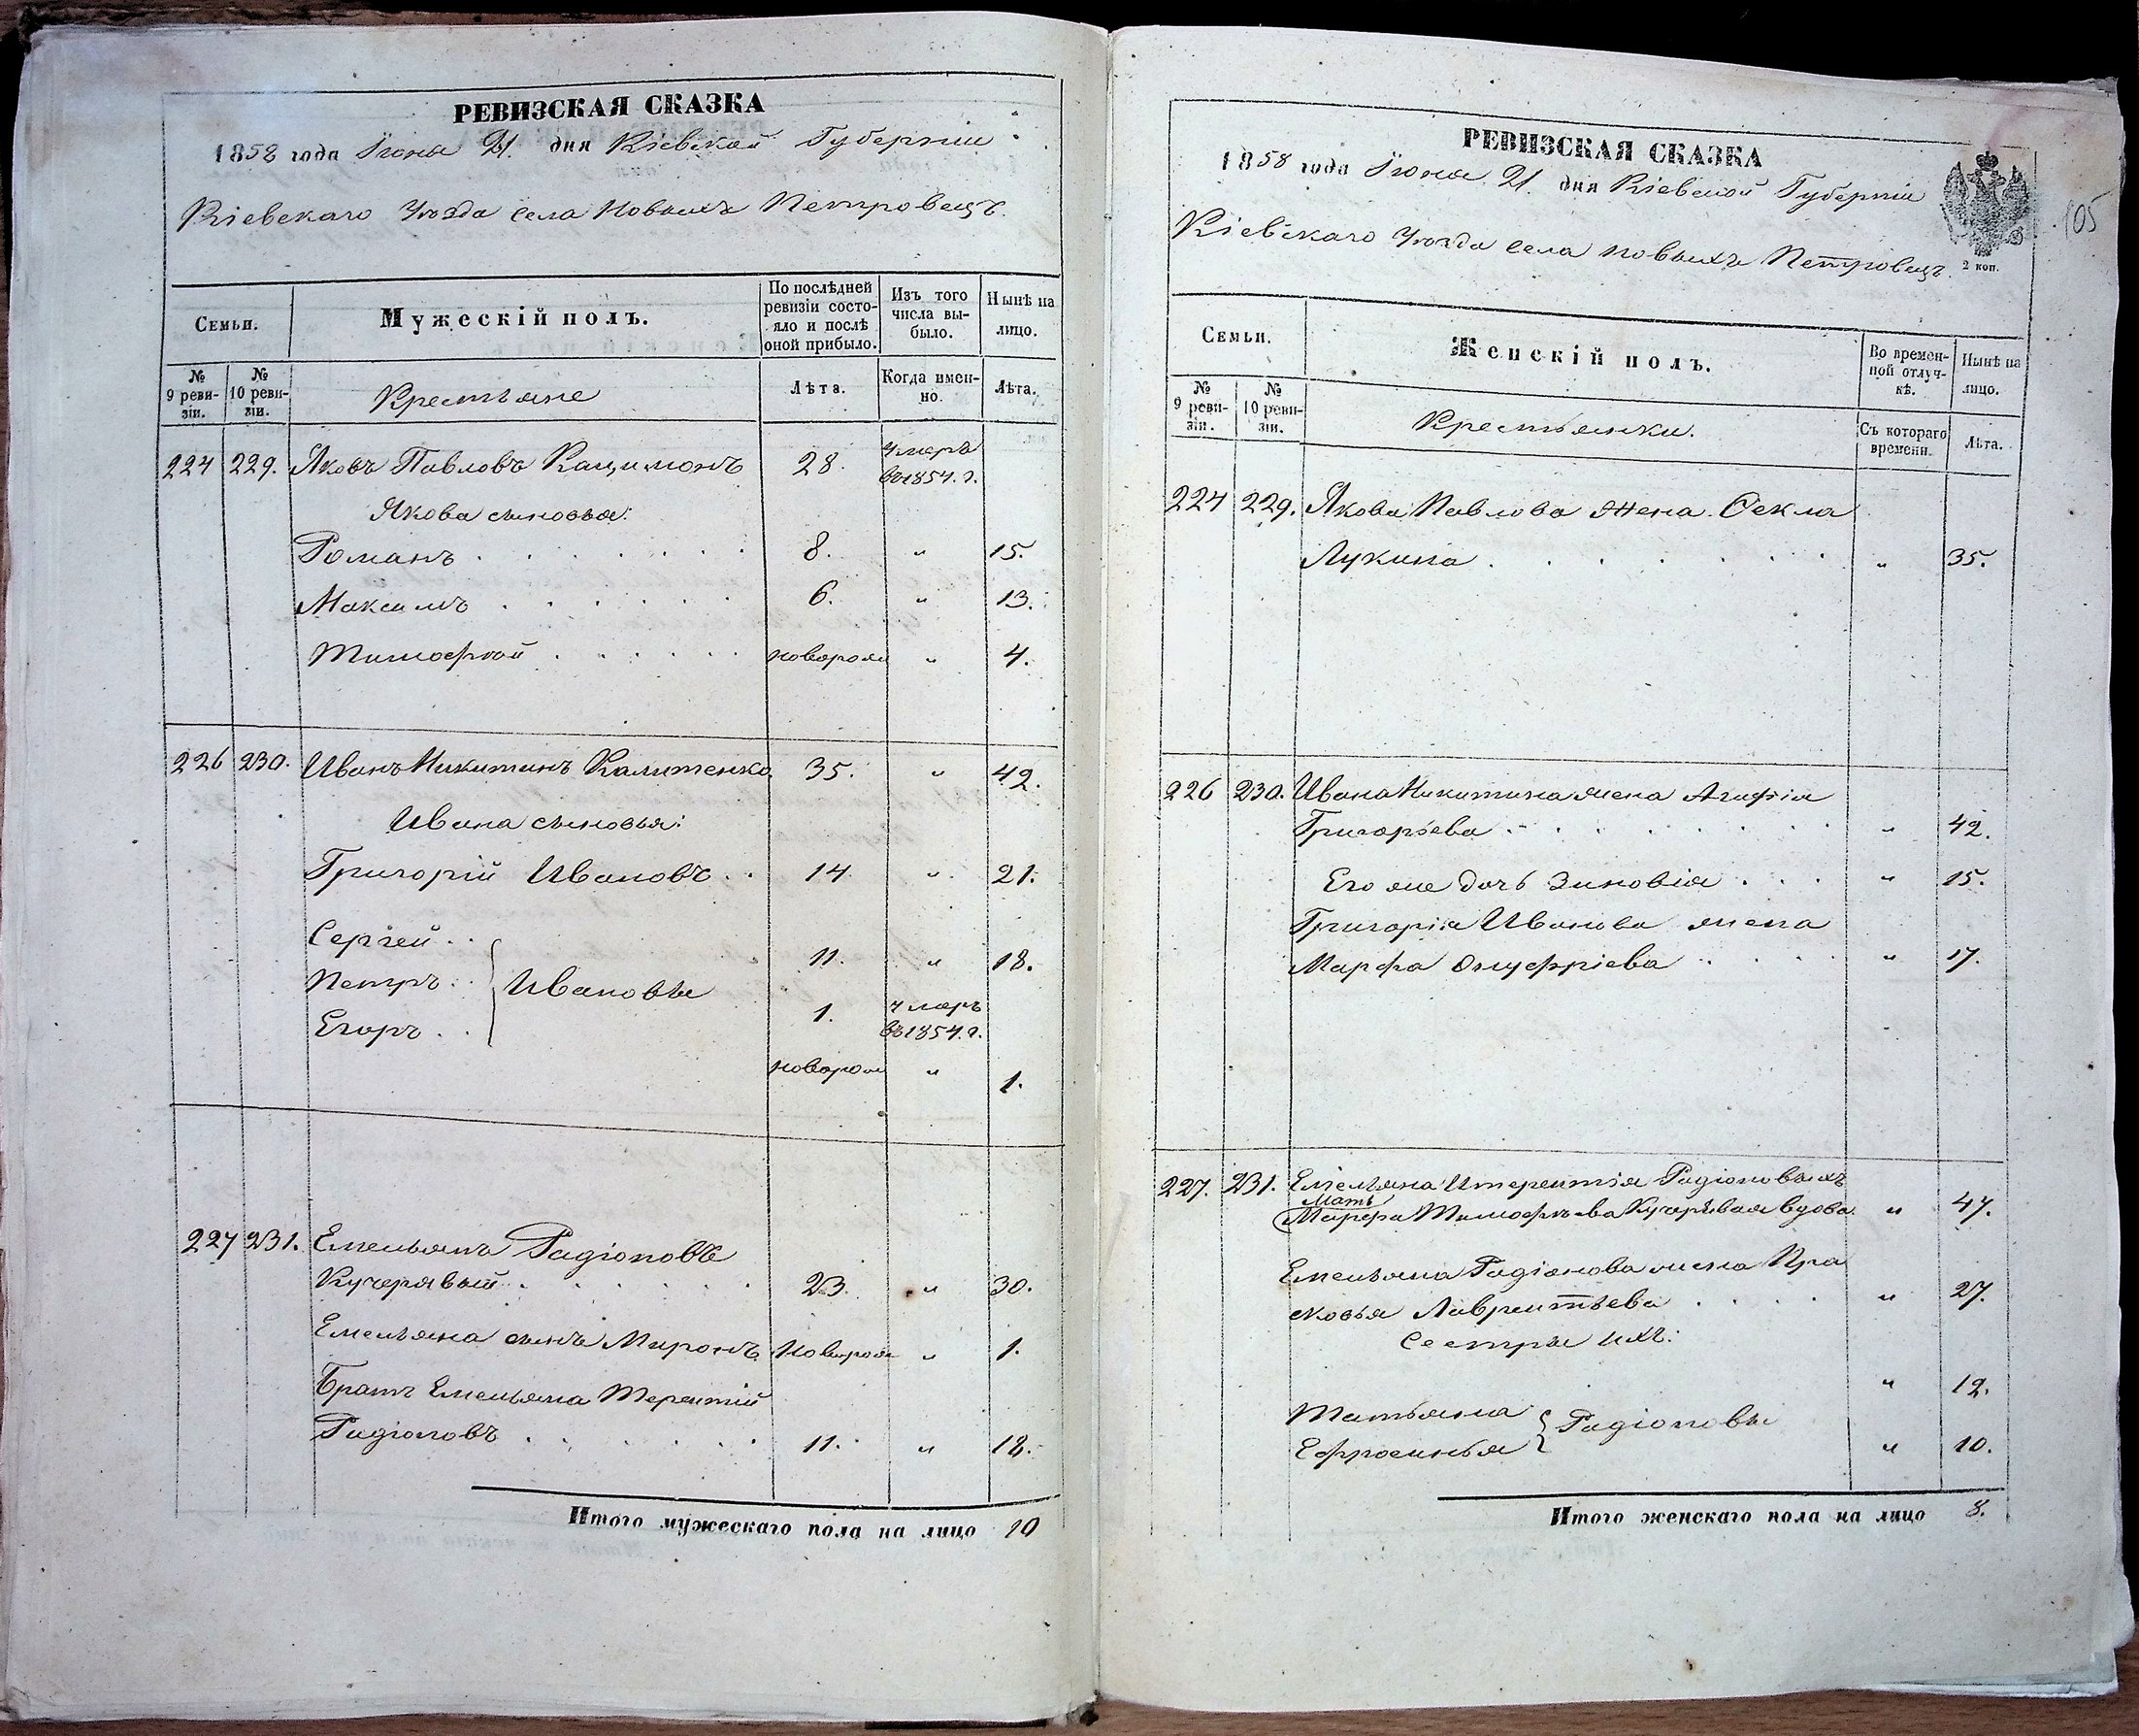 РЕВИЗСКАЯ СКАЗКА
1858 года Iюня 21. дня Кіевской Губерніи
Кіевскаго Уѣзда села Новыхъ Петровецъ.
Семьи.
Мужескій полъ.
По послѣдней ревизіи состояло и послѣ оной прибыло.
Изъ того числа выбыло.
Нынѣ на лицо.
№ 9 ревизіи.
№ 10 ревизіи.
Крестьяне
Лѣта.
Когда именно.
Лѣта.
224 229. Яковъ Павловъ 28. умеръ въ 1854. г.
Якова сыновья:
Романъ 8. " 15.
Максимъ 6. " 13.
Тимофѣй новорож " 4.
226 230. Иванъ Никитинъ Калитенко 35. " 42.
Ивана сыновья:
Григорій Ивановъ 14. " 21.
Сергей 11. " 18.
Петръ Ивановы 1. умеръ въ 1854. г.
Егоръ новорож " 1.
227 231. Емельянъ Радіоновъ
Кучерявый 23. " 30.
Емельяна сынъ Миронъ новорож " 1.
Братъ Емельяна Терентій
Радіоновъ 11. " 18.
Итого мужескаго пола на лицо 10
РЕВИЗСКАЯ СКАЗКА
1858 года Iюня 21. дня Кіевской Губерніи
Кіевскаго Уѣзда села Новыхъ Петровецъ.
2 коп.
105
Семьи.
Женскій полъ.
Во временной отлучкѣ.
Нынѣ на лицо.
№ 9 ревизіи.
№ 10 ревизіи.
Крестьянки.
Съ котораго времени.
Лѣта.
224 229. Якова Павлова жена Ѳекла
Лукина " 35.
226 230. Ивана Никитина жена Агафія
Григорьева " 42.
Его же дочь Зиновія " 15.
Григорія Иванова жена
Марфа Онуфріева " 17.
227. 231. Емельяна и Терентія Радіоновыхъ
Мать
Марфа Тимофѣева Кучерявая вдова " 47.
Емельяна Радіонова жена Пра
сковья Лаврентьева " 27.
Сестры ихъ:
Татьяна Радіоновы " 12.
Ефросинья " 10.
Итого женскаго пола на лицо 8.